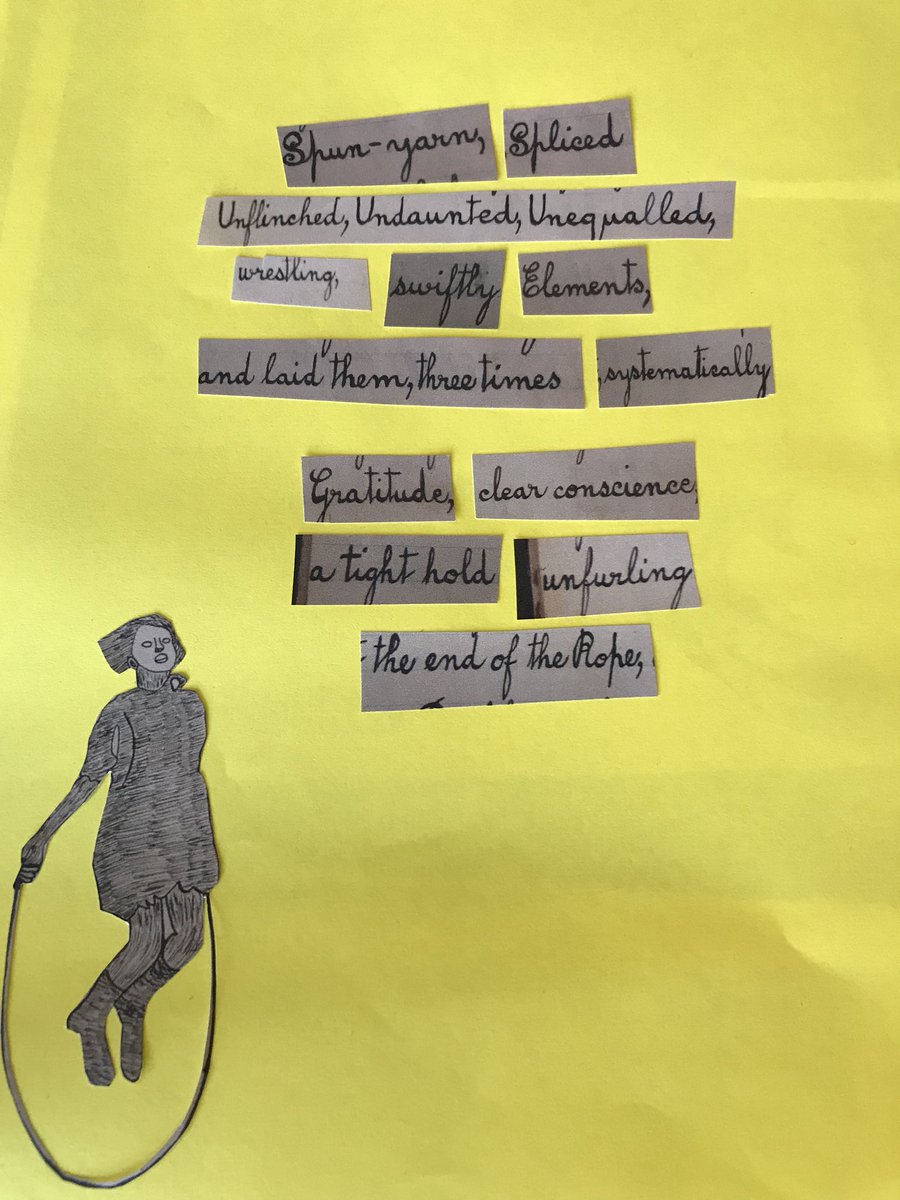 Spun-yarn, Spliced
Unflinched, Undaunted, Unequalled,
wrestling, swiftly Elements,
and laid them, three times ,systematically
Gratitude, clear conscience,
a tight hold unfurling
the end of the Rope,